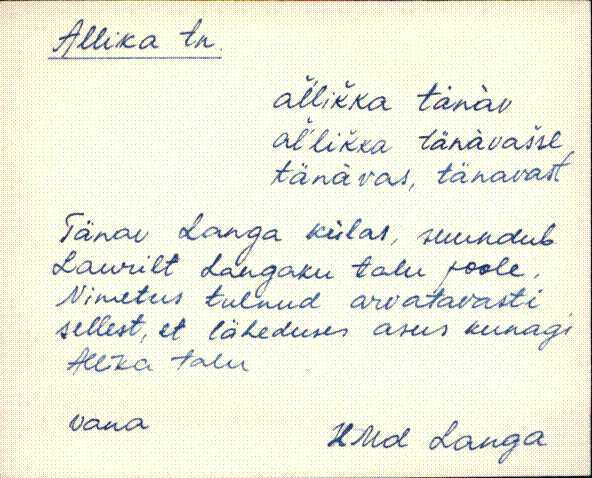 Allika tn.
al̆likka tänàv
al̆likka tänàvašse
tänàvas, tänavast
Tänav Langa külas, suundub
Laurilt Langaku talu poole.
Nimetus tulnud arvatavasti
sellest, et läheduses asus kunagi
Allika talu
vana
HMd Langa